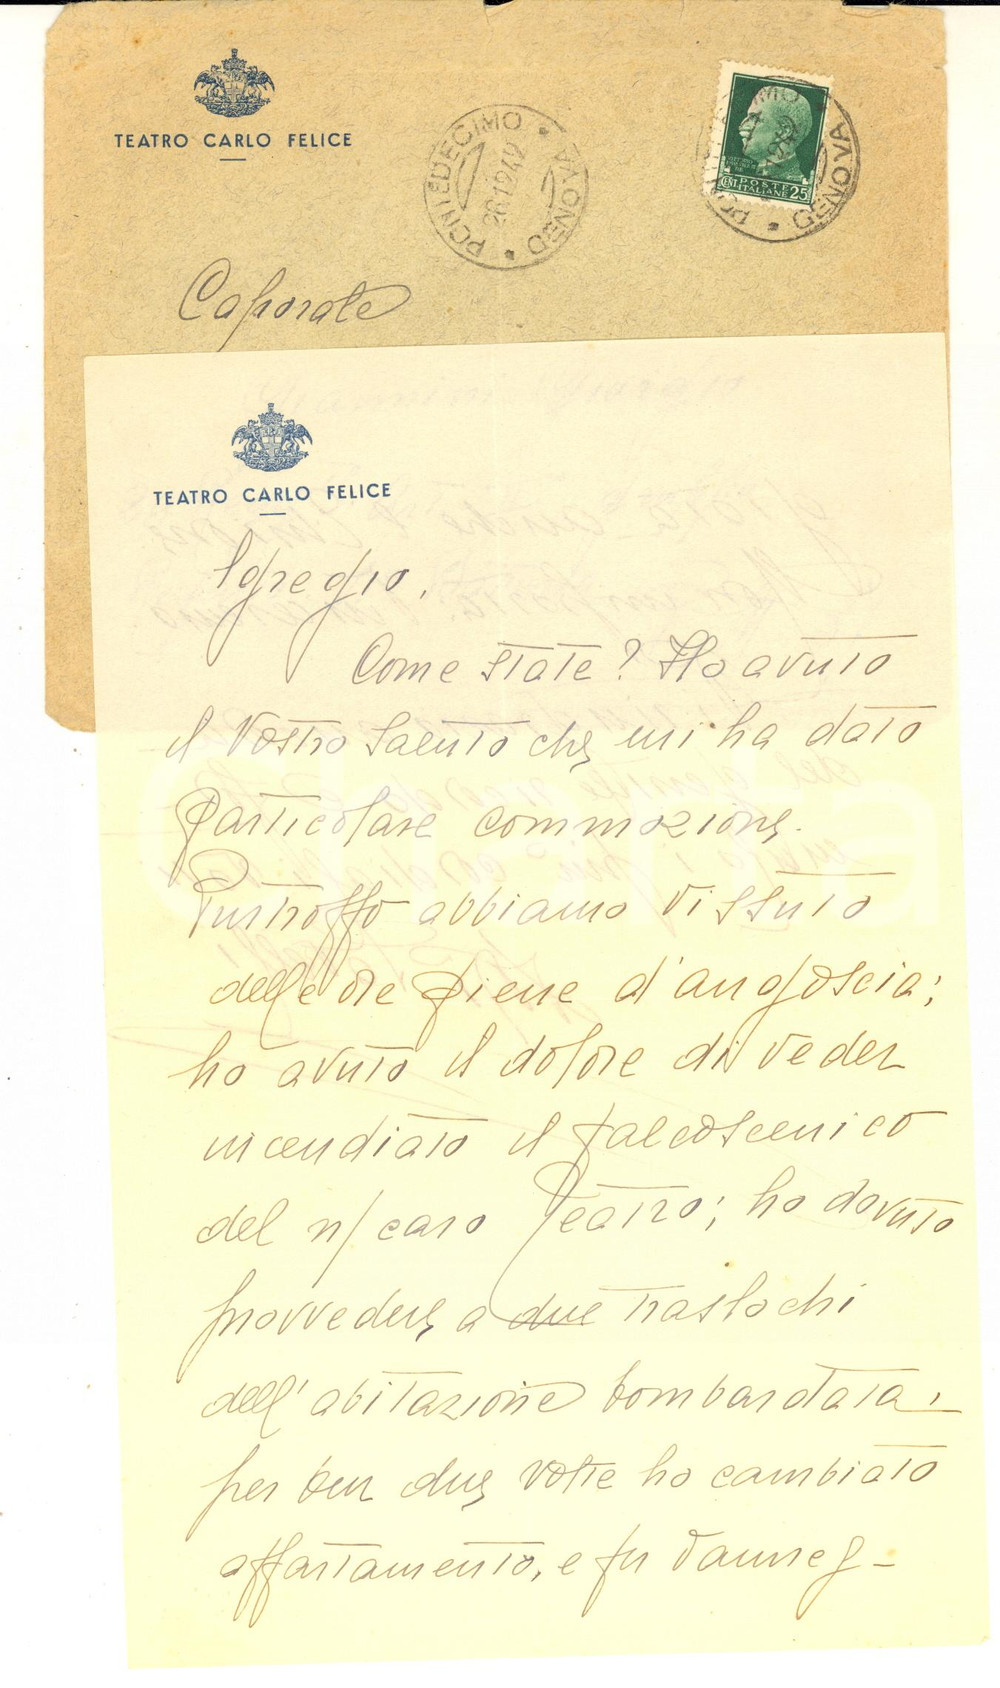 TEATRO CARLO FELICE
PONTEDECIMO * GENOVA *
1942
PONTEDECIMO * GENOVA *
POSTE
ITALIANE
CENT. 25
Caporale
TEATRO CARLO FELICE
Egregio,
Come state? Ho avuto
il Vostro saluto che mi ha dato
particolare commozione.
Purtroppo abbiamo vissuto
delle ore piene d'angoscia;
ho avuto il dolore di veder
incendiato il palcoscenico
del n/ caro Teatro; ho dovuto
provvedere a due traslochi
dell'abitazione bombardata;
per ben due volte ho cambiato
appartamento, e fu danneg-